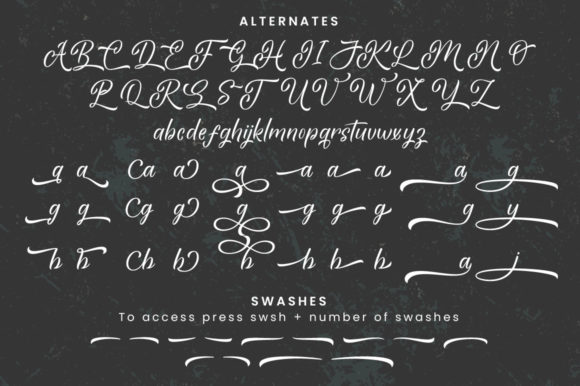 ALTERNATES
A B C D E F G H I J K L M N O
P Q R S T U V W X Y Z
abcdefghijklmnopqrstuvwxyz
a a Ca a a a a a a g
g g Cg g g g g g g y
b b Cb b b b b b a j
SWASHES
To access press swsh + number of swashes